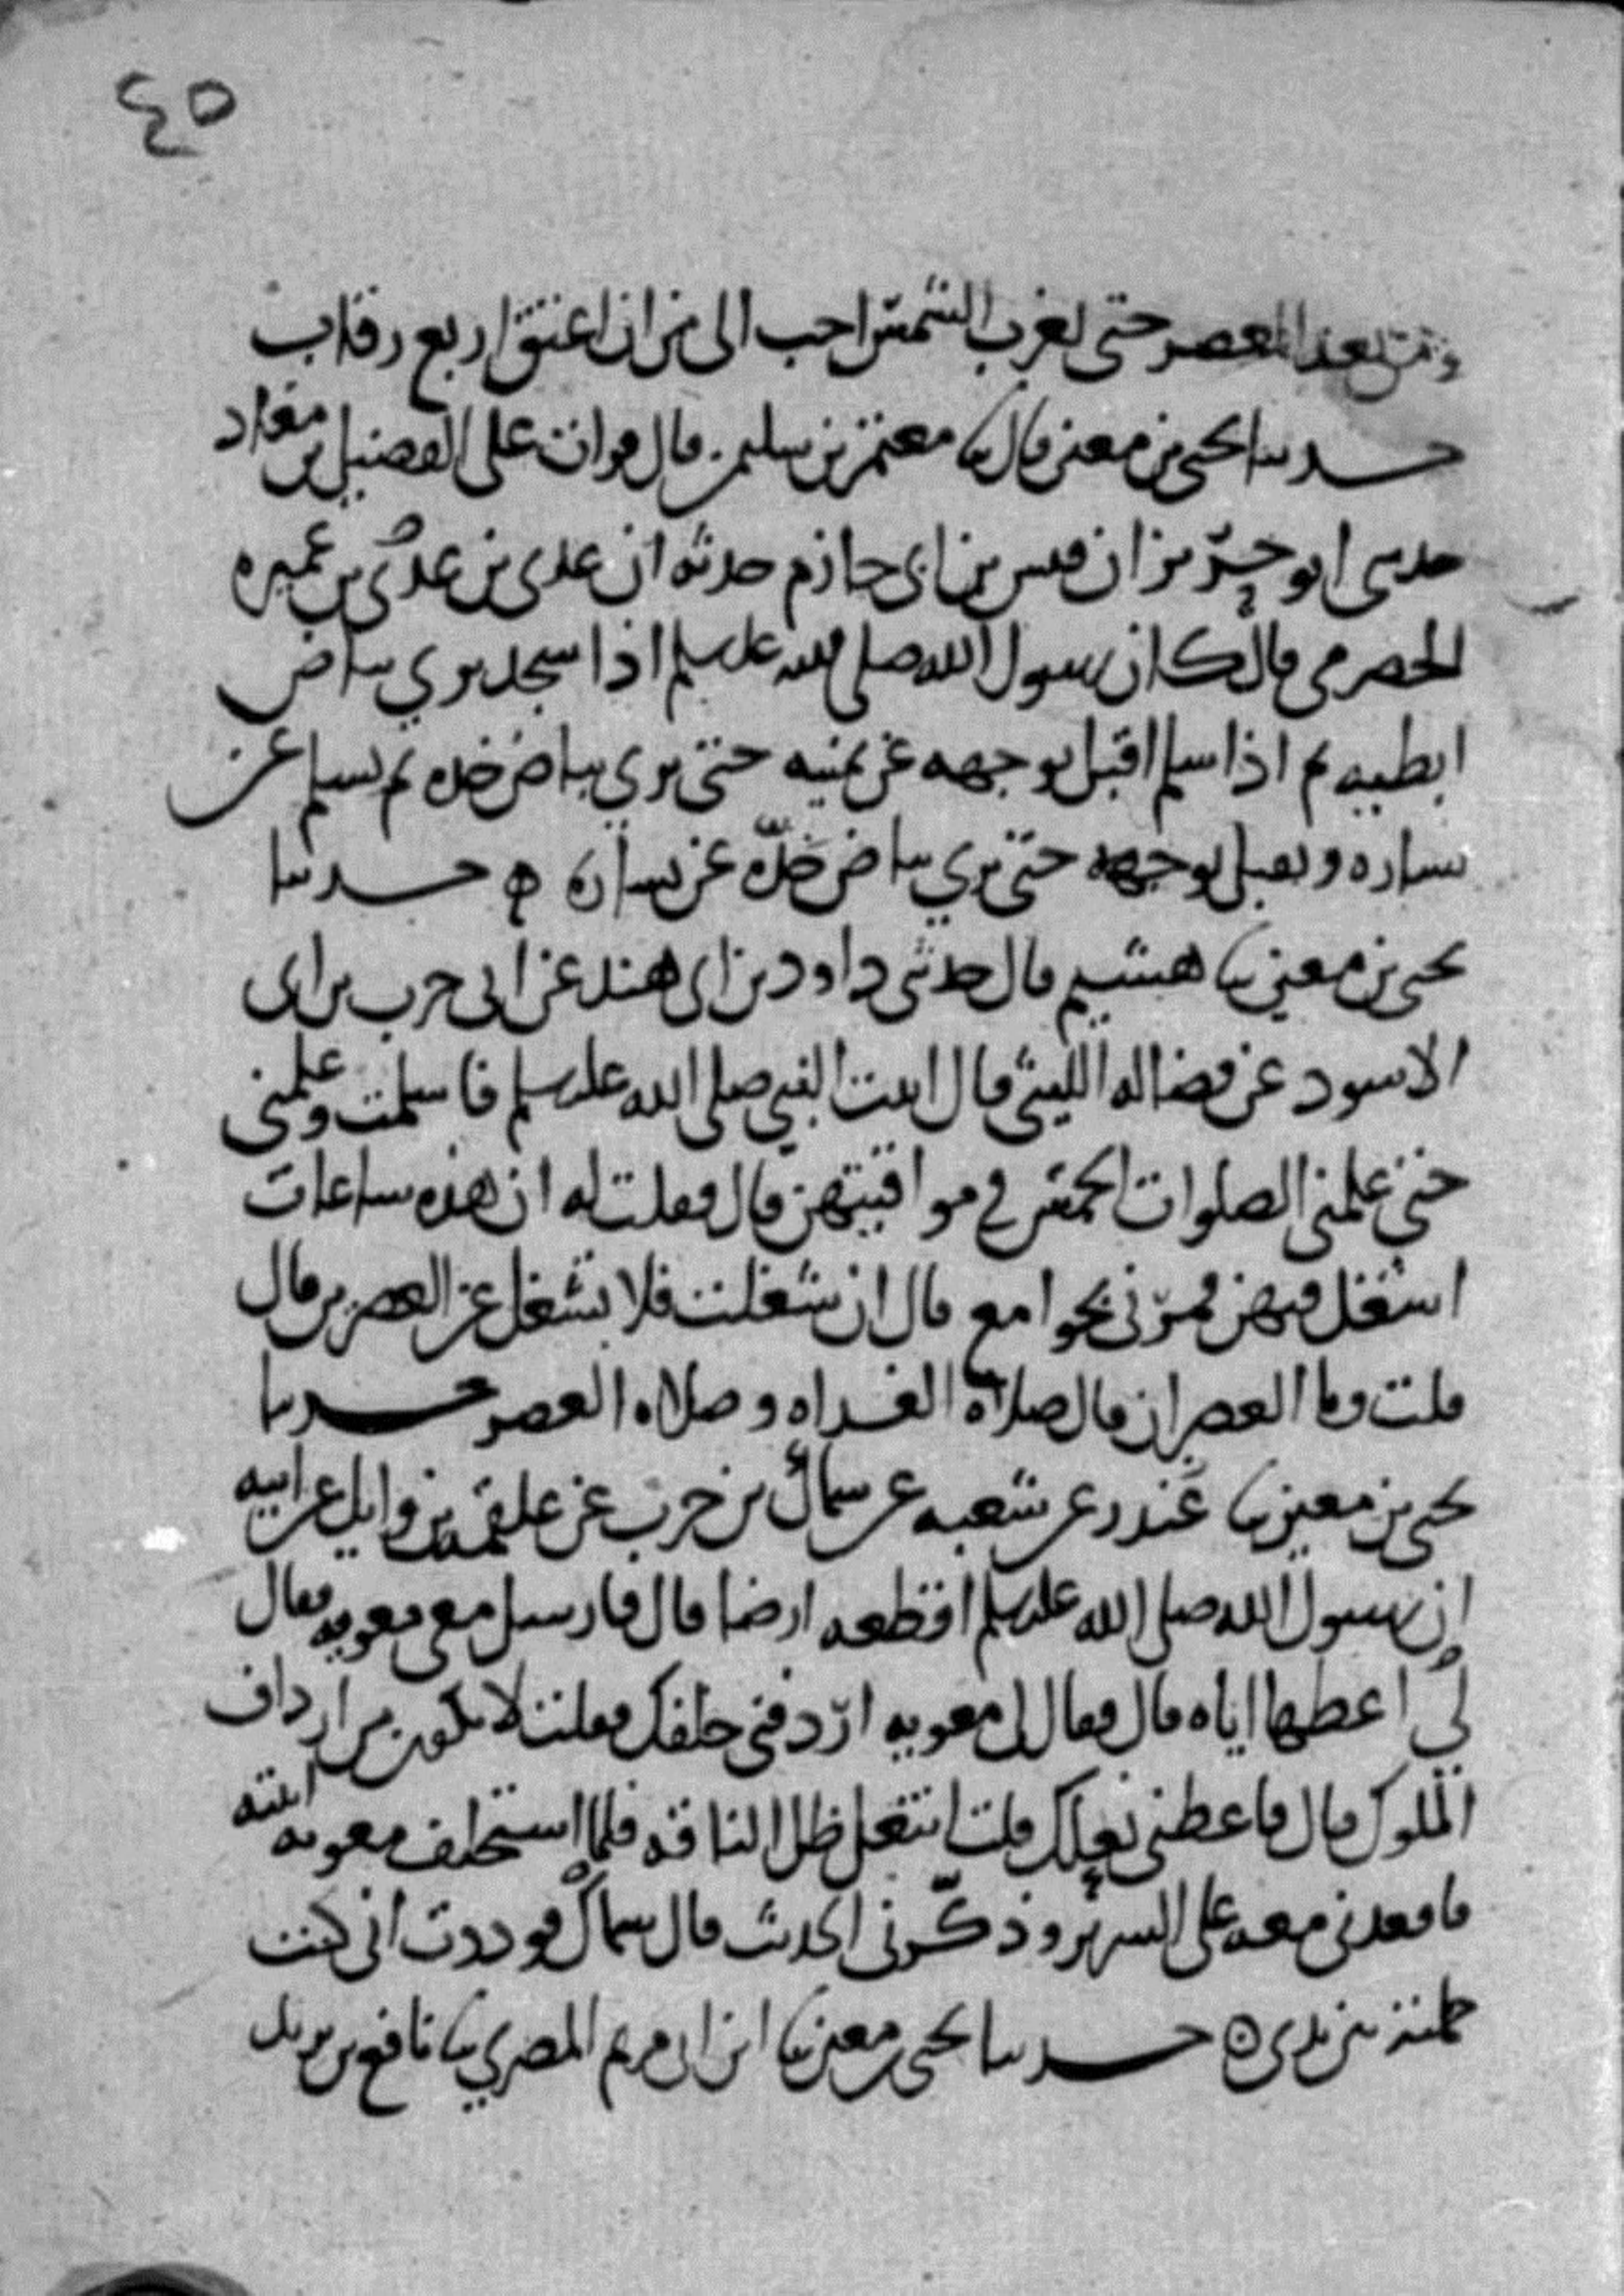 ٤٥
ومن بعد العصر حتى تغرب الشمس احب الى من ان اعتق اربع رقاب
حدثنا يحيى بن معين قال ثنا معتمر بن سليمن قال قرات على الفضيل بن
حدثني ابو حريز ان قيس بن ابي حازم حدثه ان عدي بن عدي بن عميره
الحضرمي قال كان رسول الله صلى الله عليه وسلم اذا سجد يري بياض
ابطيه ثم اذا سلم اقبل بوجهه عن يمينه حتى يري بياض خده ثم يسلم عن
يساره ويقبل بوجهه حتى يري بياض خده عن يساره ه حدثنا
يحيى بن معين ثنا هشيم قال حدثني داود بن ابي هند عن ابي حرب بن ابي
الاسود عن فضاله الليثي قال اتيت النبي صلى الله عليه وسلم فاسلمت وعلمني
حتى علمني الصلوات الخمس في مواقيتهن قال فقلت له ان هذه ساعات
اشغل فيهن فمرني بجوامع قال ان شغلت فلا تشغل عن العصرين قال
قلت وما العصران قال صلاه الغداه وصلاه العصر حدثنا
يحيى بن معين ثنا غندر عن شعبه عن سماك بن حرب عن علقمه بن وايل عن ابيه
ان رسول الله صلى الله عليه وسلم اقطعه ارضا قال فارسل معي معويه فقال
لي اعطها اياه قال فقال لي معويه اردفني خلفك فقلت لا تكون من ارداف
الملوك قال فاعطني نعلك قلت انتعل ظل الناقه فلما استخلف معويه اتيته
فاقعدني معه على السرير وذكرني الحديث قال سماك فوددت اني كنت
حملته بين يدي ه حدثنا يحيى بن معين ثنا ابن ابي مريم المصري ثنا نافع بن يزيد